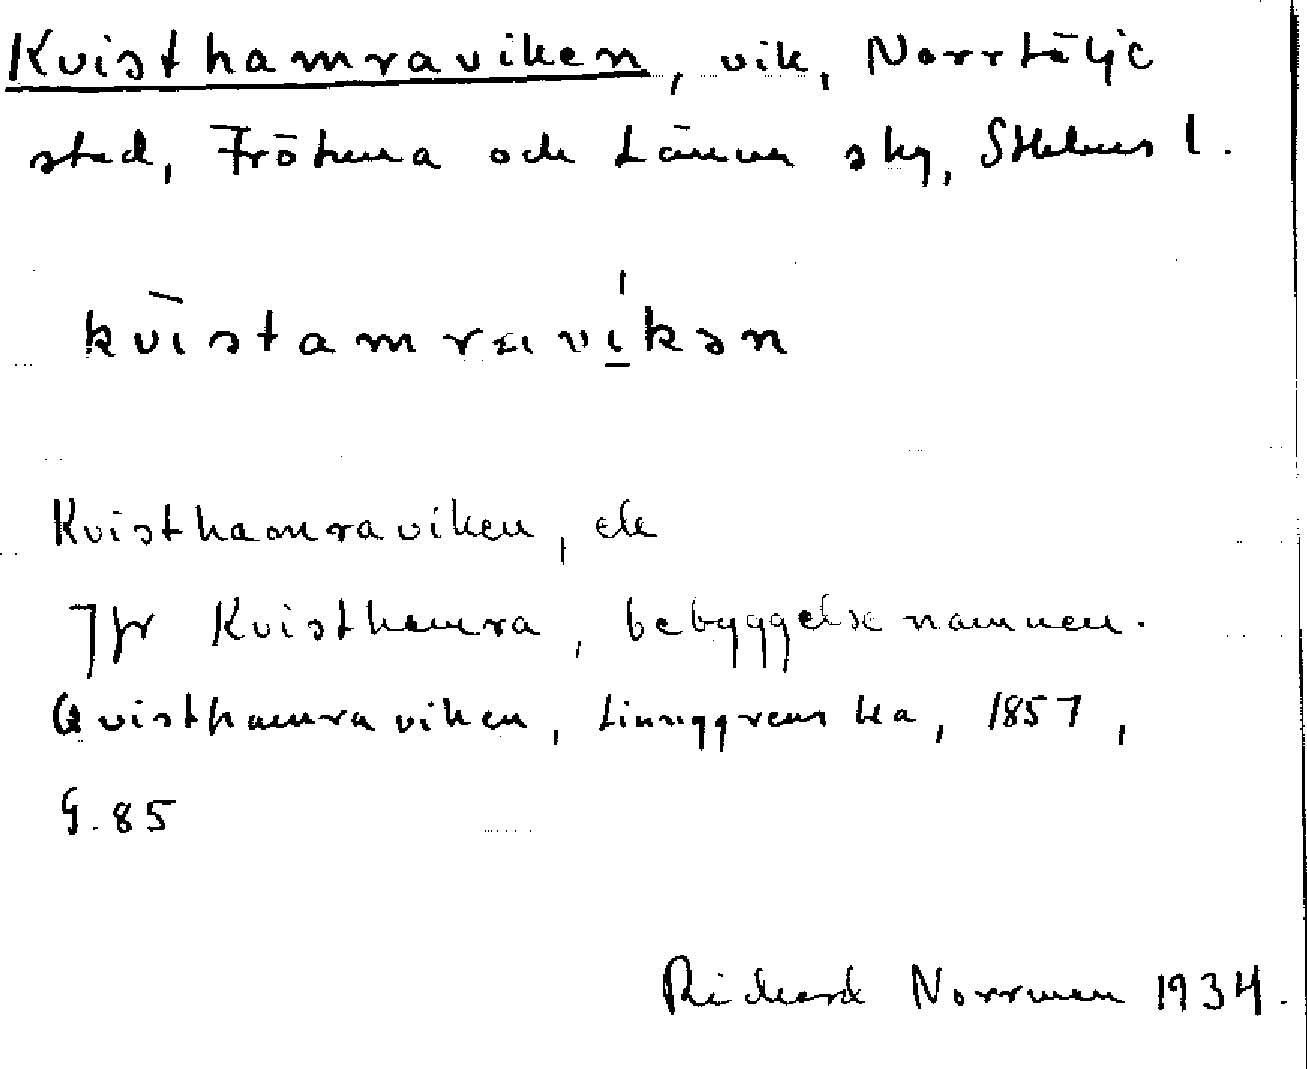 Kvisthamraviken, vik, Norrtälje
stad, Frötuna och Länna skg, Sthlms l.
kvistamravikən
Kvisthamraviken, ek
Jfr Kvisthamra, bebyggelsenamnen.
Qvisthamraviken, Ljunggrens ka, 1857,
G. 85
Richard Norrman 1934.